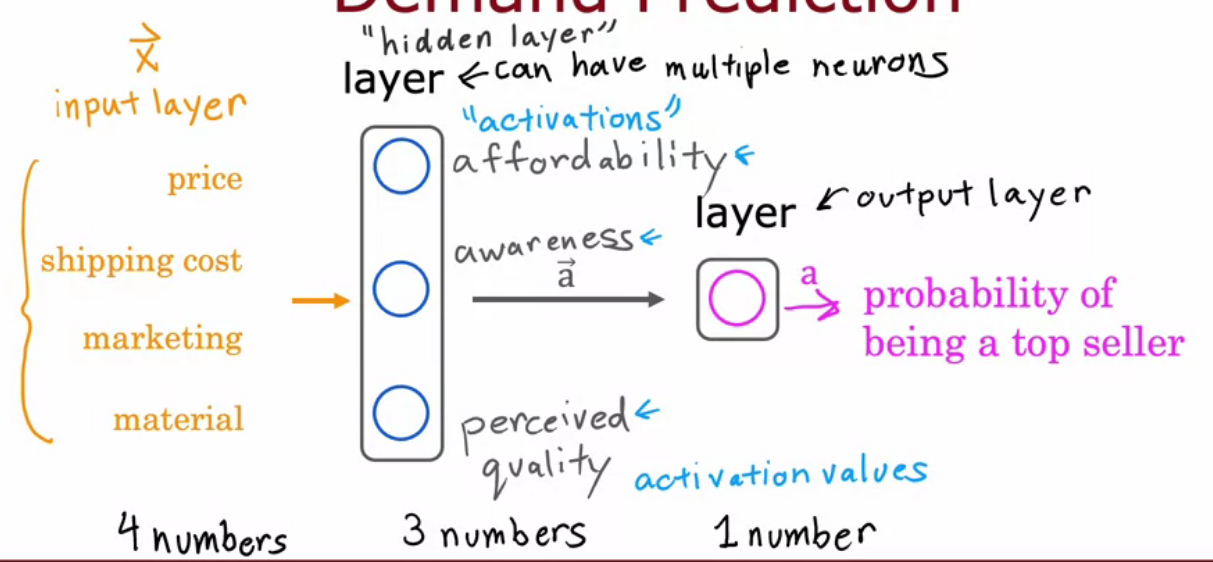 Demand Prediction
x
input layer
price
shipping cost
marketing
material
4 numbers
"hidden layer"
layer ← can have multiple neurons
"activations"
affordability ←
awareness ←
a
perceived ←
quality
activation values
3 numbers
layer ← output layer
a
probability of
being a top seller
1 number